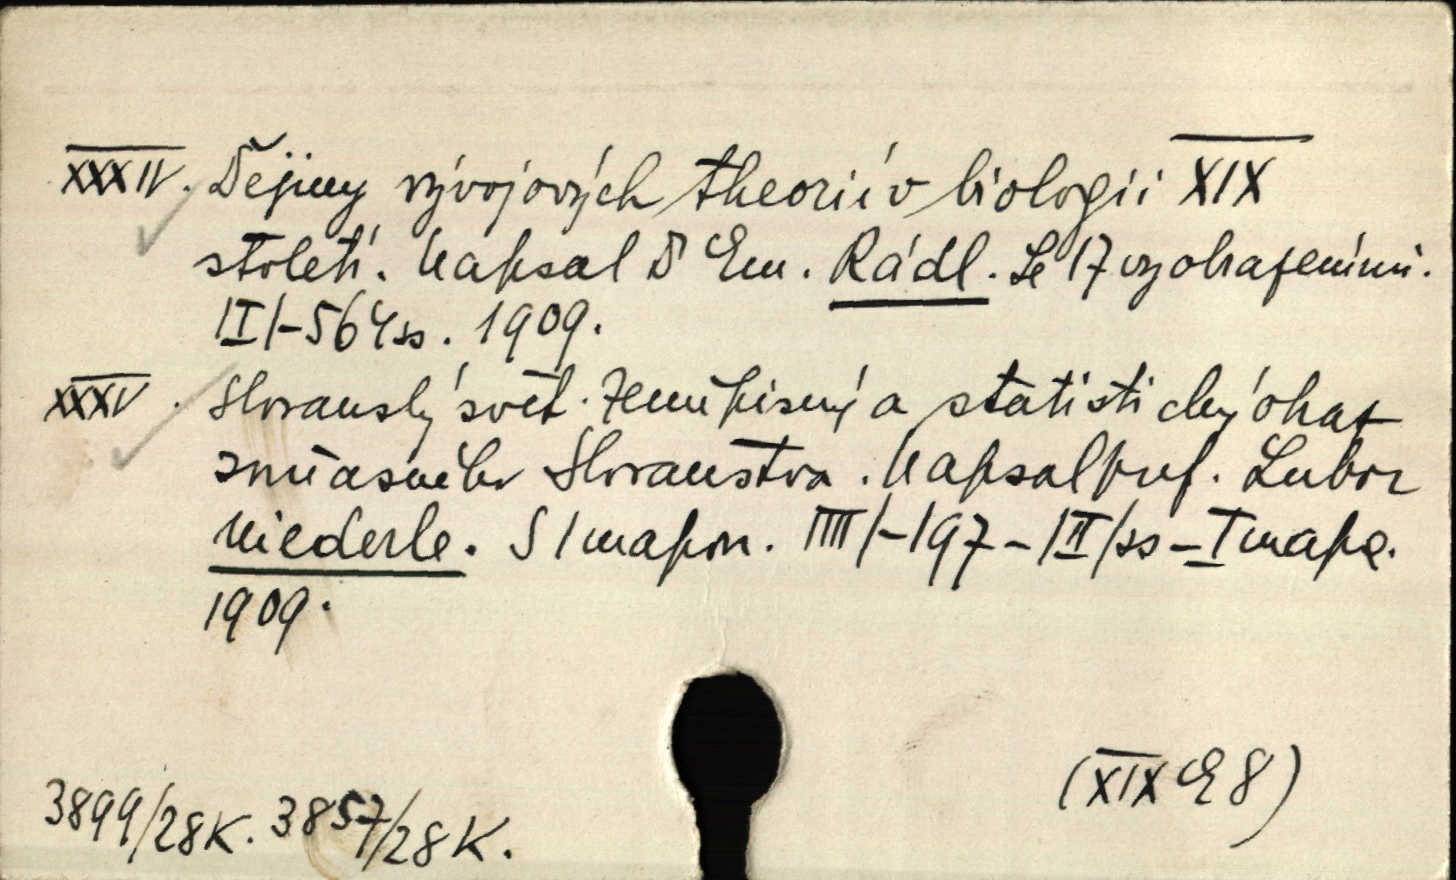 XXXIV. Dějiny vývojových theorií v biologii XIX
století. Napsal Dr Em. Rádl. Se 17 vyobrazeními.
|II|-564 ss. 1909.
XXXV. Slovanský svět. Zeměpisný a statistický obraz
současného Slovanstva. Napsal prof. Lubor
Niederle. S 1 mapou. IIII|-197-|II|ss-I mapa.
1909.
(XIX E 8)
3899/28K. 3857/28K.